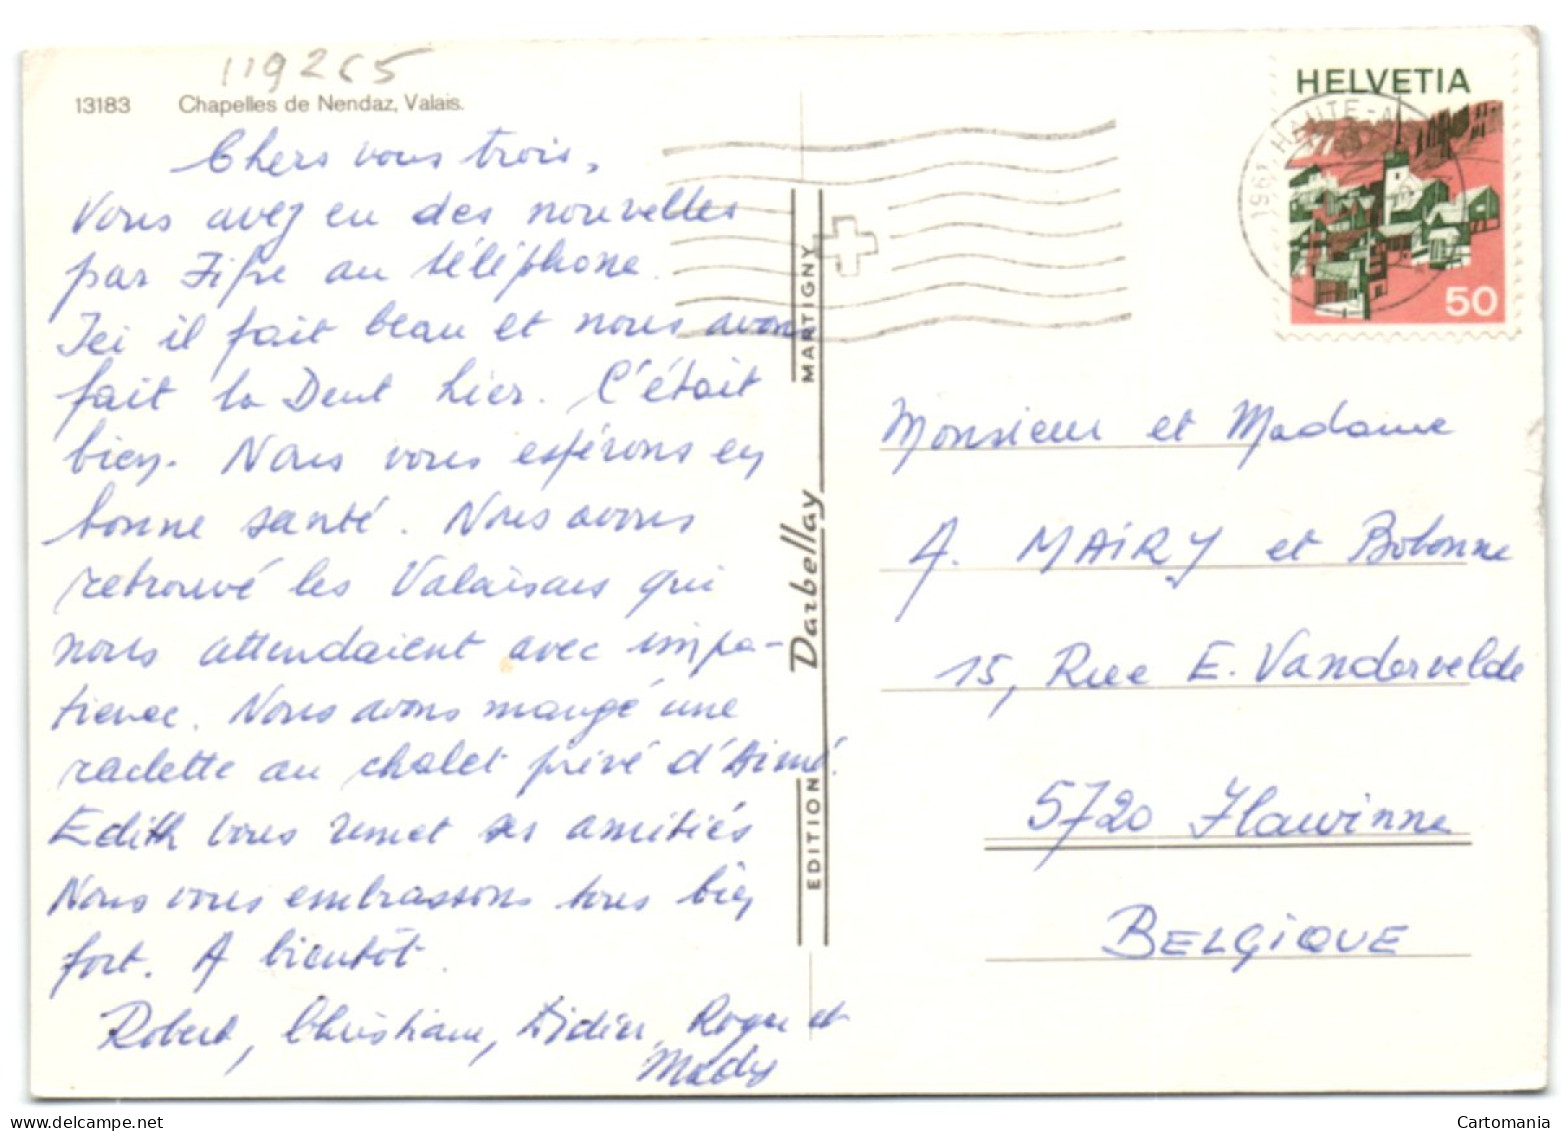 119265
13183 Chapelles de Nendaz, Valais.
Chers vous trois,
Vous avez eu des nouvelles
par Fifre au téléphone.
Ici il fait beau et nous avons
fait la Dent hier. C'était
bien. Nous vous espérons en
bonne santé. Nous avons
retrouvé les Valaisans qui
nous attendaient avec impa-
tience. Nous avons mangé une
raclette au chalet privé d'Aimé.
Edith vous remet ses amitiés
Nous vous embrassons tous bien
fort. A bientôt.
Robert, Christiane, Didier, Roger et
Mady
EDITION Darbellay MARTIGNY
HELVETIA
50
HAUTE-
Monsieur et Madame
A. MAIRY et Bobonne
15, Rue E. Vandervelde
5720 Flawinne
BELGIQUE
Cartomania